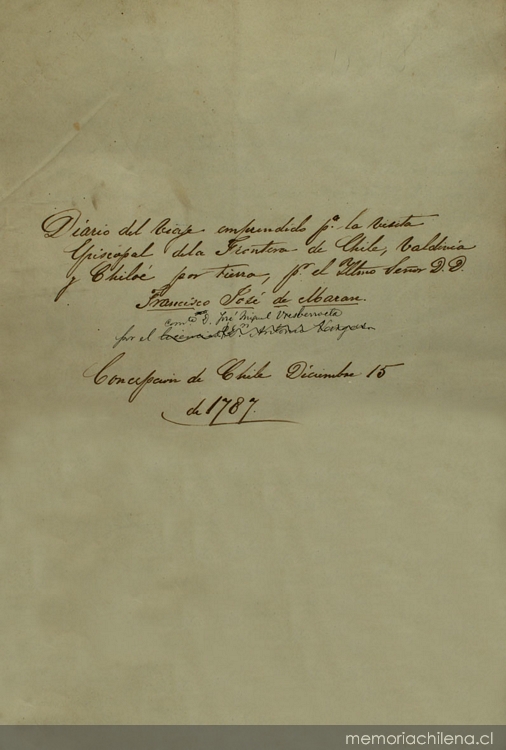 Diario del Viaje emprendido pª la visita
Episcopal dela Frontera de Chile, Valdivia
y Chiloé por tierra, pr el Iltmo Señor D.D.
Francisco José de Maran.
D. José Miguel
por el Antonio Vargas
Concepcion de Chile Diciembre 15
de 1787.
memoriachilena.cl